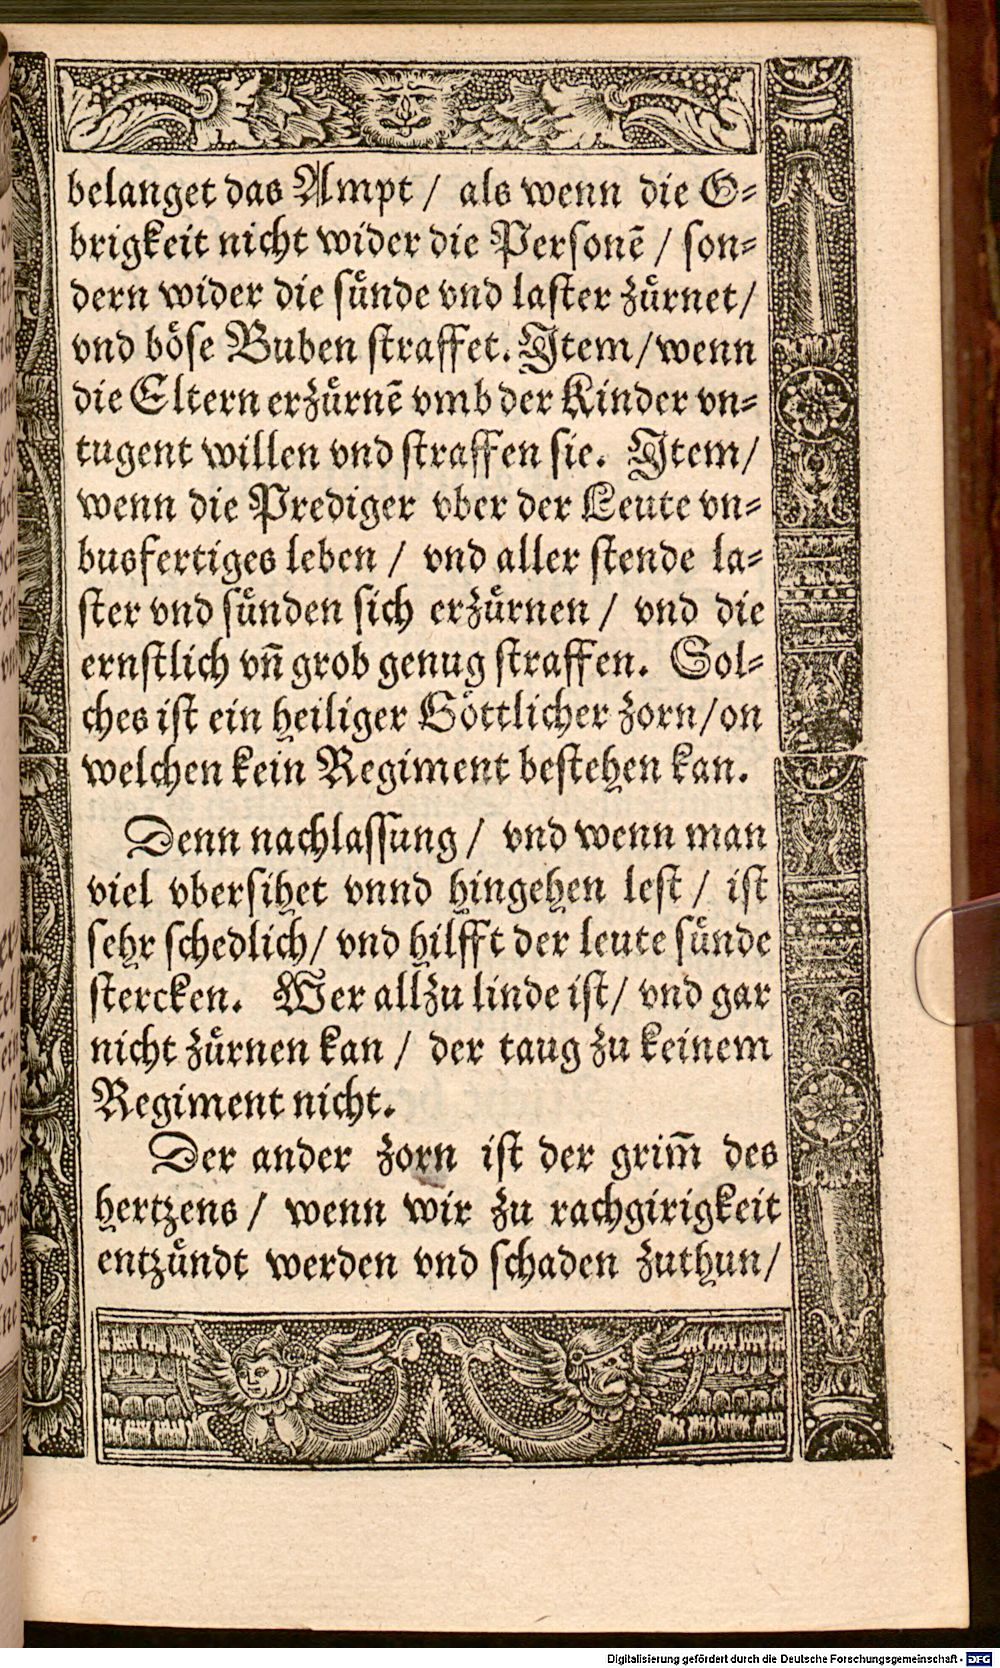 belanget das Ampt / als wenn die O⸗
brigkeit nicht wider die Personē / son⸗
dern wider die sünde vnd laster zürnet /
vnd böse Buben straffet. Item / wenn
die Eltern erzürnē vmb der Kinder vn⸗
tugent willen vnd straffen sie. Item /
wenn die Prediger vber der Leute vn⸗
busfertiges leben / vnd aller stende la⸗
ster vnd sünden sich erzürnen / vnd die
ernstlich vn̄ grob genug straffen. Sol⸗
ches ist ein heiliger Göttlicher zorn / on
welchen kein Regiment bestehen kan.
Denn nachlassung / vnd wenn man
viel vbersihet vnnd hingehen lest / ist
sehr schedlich / vnd hilfft der leute sünde
stercken. Wer allzu linde ist / vnd gar
nicht zürnen kan / der taug zu keinem
Regiment nicht.
Der ander zorn ist der grim̄ des
hertzens / wenn wir zu rachgirigkeit
entzündt werden vnd schaden zuthun /
Digitalisierung gefördert durch die Deutsche Forschungsgemeinschaft - DFG